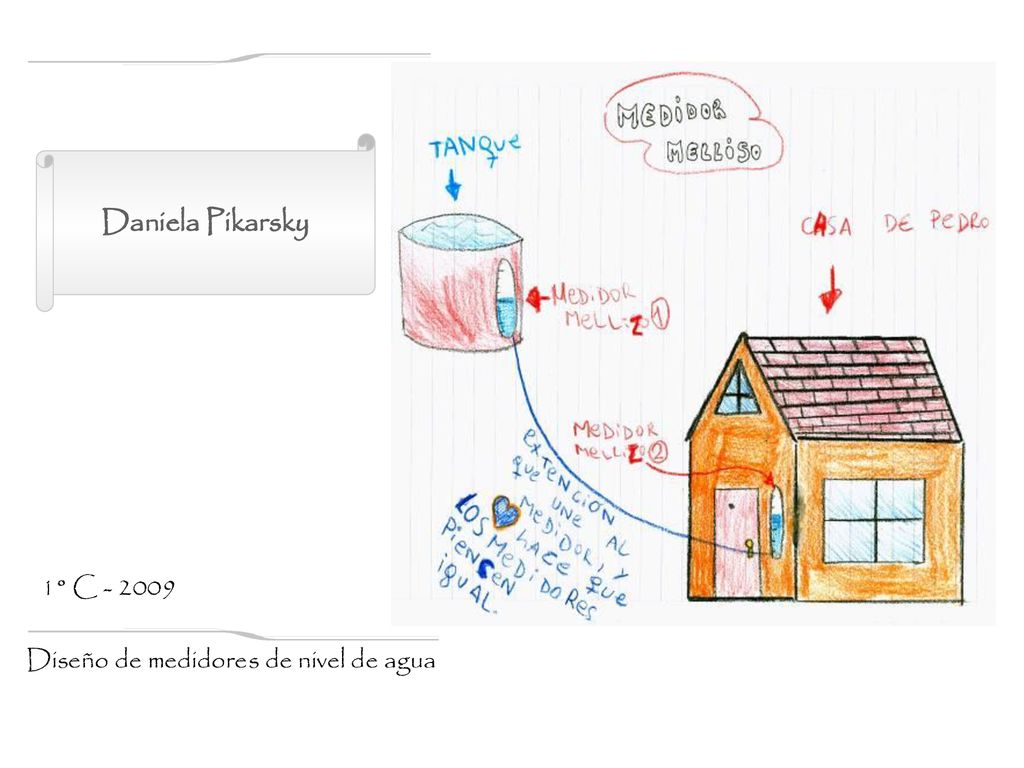 Daniela Pikarsky
1º C - 2009
Diseño de medidores de nivel de agua
MEDiDOR
MELLiSO
TANQUE
CASA DE PEDRO
MEDiDOR
MELLiZO 1
MEDiDOR
MELLiZO 2
EXTENCiÓN
QUE UNE AL
MEDiDOR, Y
HACE QUE
LOS MEDiDORES
PiENCEN
iGUAL.